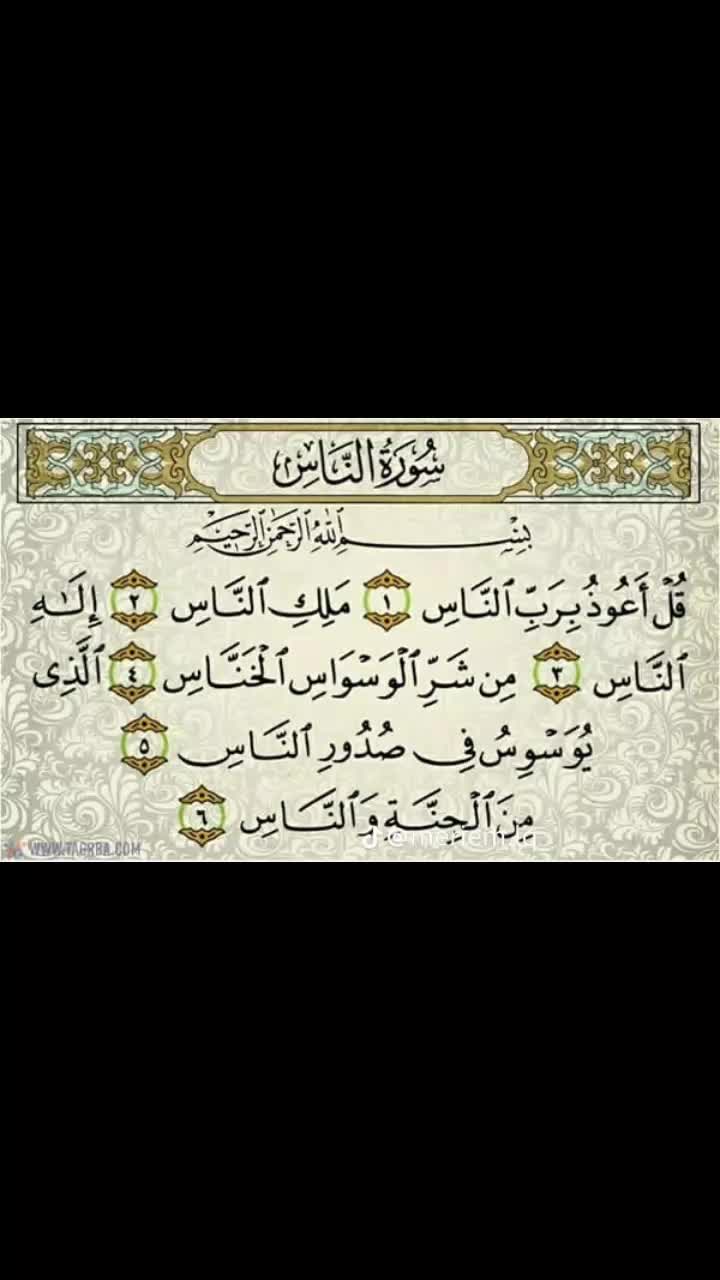 سُورَةُ النَّاسِ
بِسْمِ اللَّهِ الرَّحْمَٰنِ الرَّحِيمِ
قُلْ أَعُوذُ بِرَبِّ ٱلنَّاسِ ١ مَلِكِ ٱلنَّاسِ ٢ إِلَٰهِ
ٱلنَّاسِ ٣ مِن شَرِّ ٱلْوَسْوَاسِ ٱلْخَنَّاسِ ٤ ٱلَّذِى
يُوَسْوِسُ فِى صُدُورِ ٱلنَّاسِ ٥
مِنَ ٱلْجِنَّةِ وَٱلنَّاسِ ٦
WWW.TAGRBA.COM